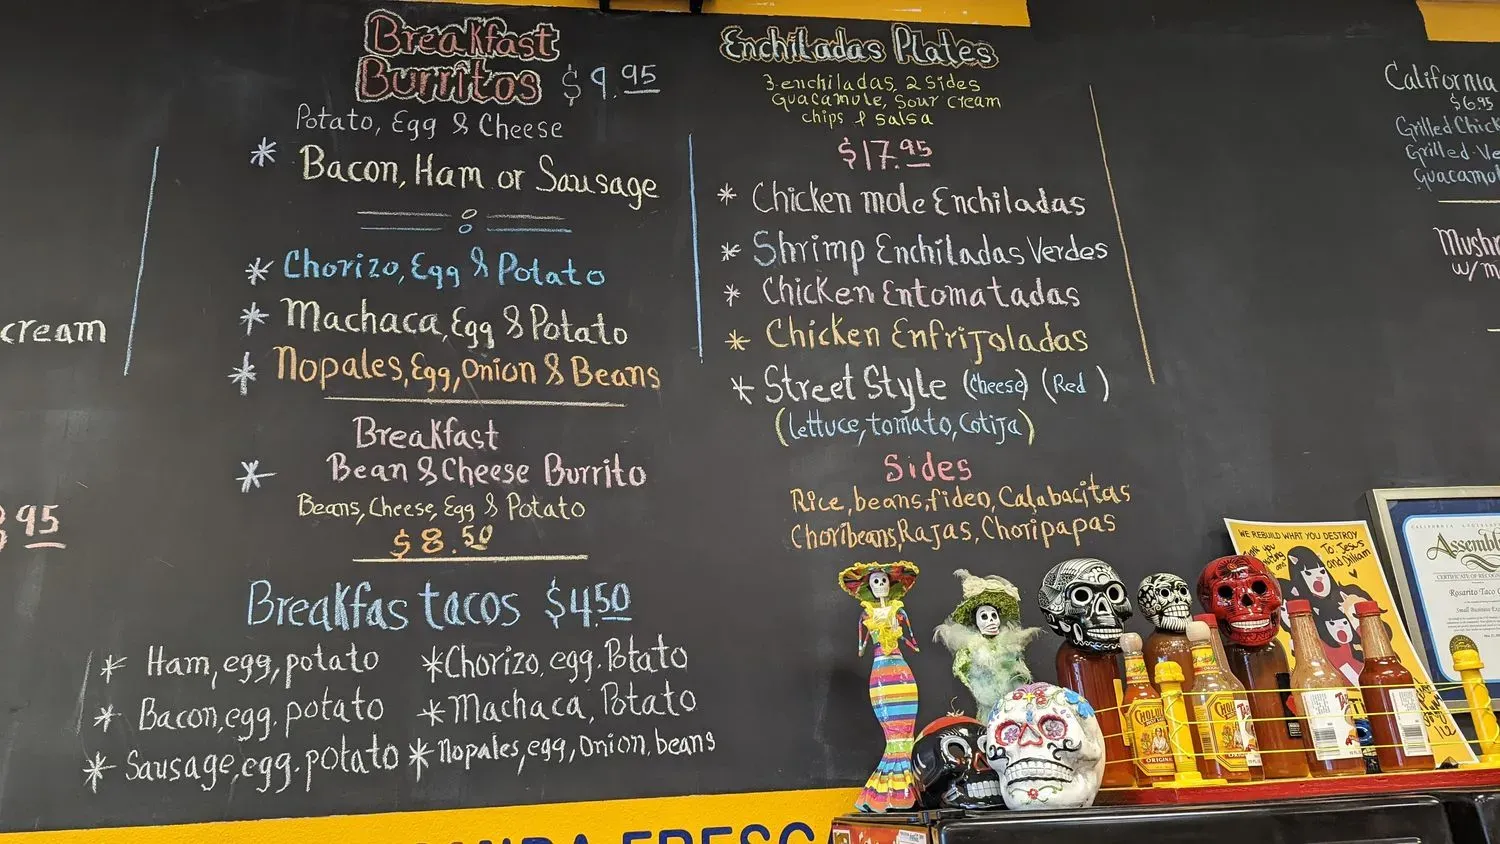 cream
95
Breakfast
Burritos $9.95
Potato, Egg & Cheese
* Bacon, Ham or Sausage
* Chorizo, Egg & Potato
* Machaca, Egg & Potato
* Nopales, Egg, Onion & Beans
Breakfast
* Bean & Cheese Burrito
Beans, Cheese, Egg & Potato
$8.50
Breakfas tacos $4.50
* Ham, egg, potato
* Bacon, egg. potato
* Sausage, egg. potato
* Chorizo, egg. Potato
* Machaca, Potato
* Nopales, egg, Onion, beans
Enchiladas Plates
3-enchiladas, 2 sides
Guacamole, Sour cream
chips & salsa
$17.95
* Chicken mole Enchiladas
* Shrimp Enchiladas Verdes
* Chicken Entomatadas
* Chicken Enfrijoladas
* Street Style (Cheese) (Red )
(lettuce, tomato, Cotija)
Sides
Rice, beans, fideo, Calabacitas
Choribeans, Rajas, Choripapas
California
$6.95
Grilled Chick
Grilled-Ve
Guacamol
Mushr
w/m
WE REBUILD WHAT YOU DESTROY
To: Jesus
and Dilliam
CALIFORNIA LEGISL
Assembl
CERTIFICATE OF RECOG
Rosarito Taco
Small Business
CHOLULA
ORIGINAL